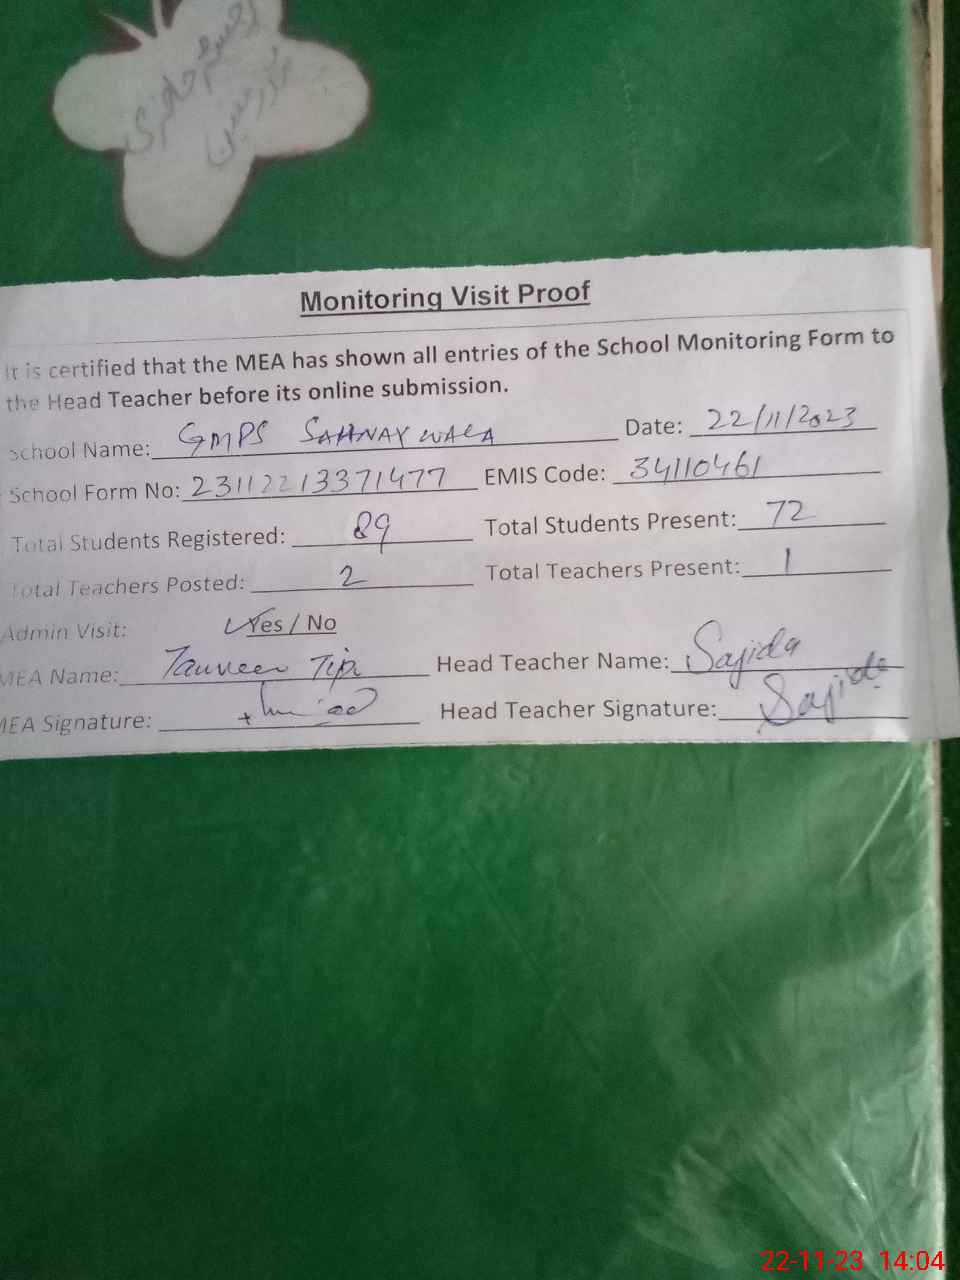 رجسٹر حاضری
مدرسین
Monitoring Visit Proof
It is certified that the MEA has shown all entries of the School Monitoring Form to
the Head Teacher before its online submission.
School Name: GMPS SAHNAY WALA Date: 22/11/2023
School Form No: 23112213371477 EMIS Code: 34110461
Total Students Registered: 89 Total Students Present: 72
Total Teachers Posted: 2 Total Teachers Present: 1
Admin Visit: Yes / No
MEA Name: Tanveer Tipu Head Teacher Name: Sajida
MEA Signature: Head Teacher Signature: Sajida
22-11-23 14:04